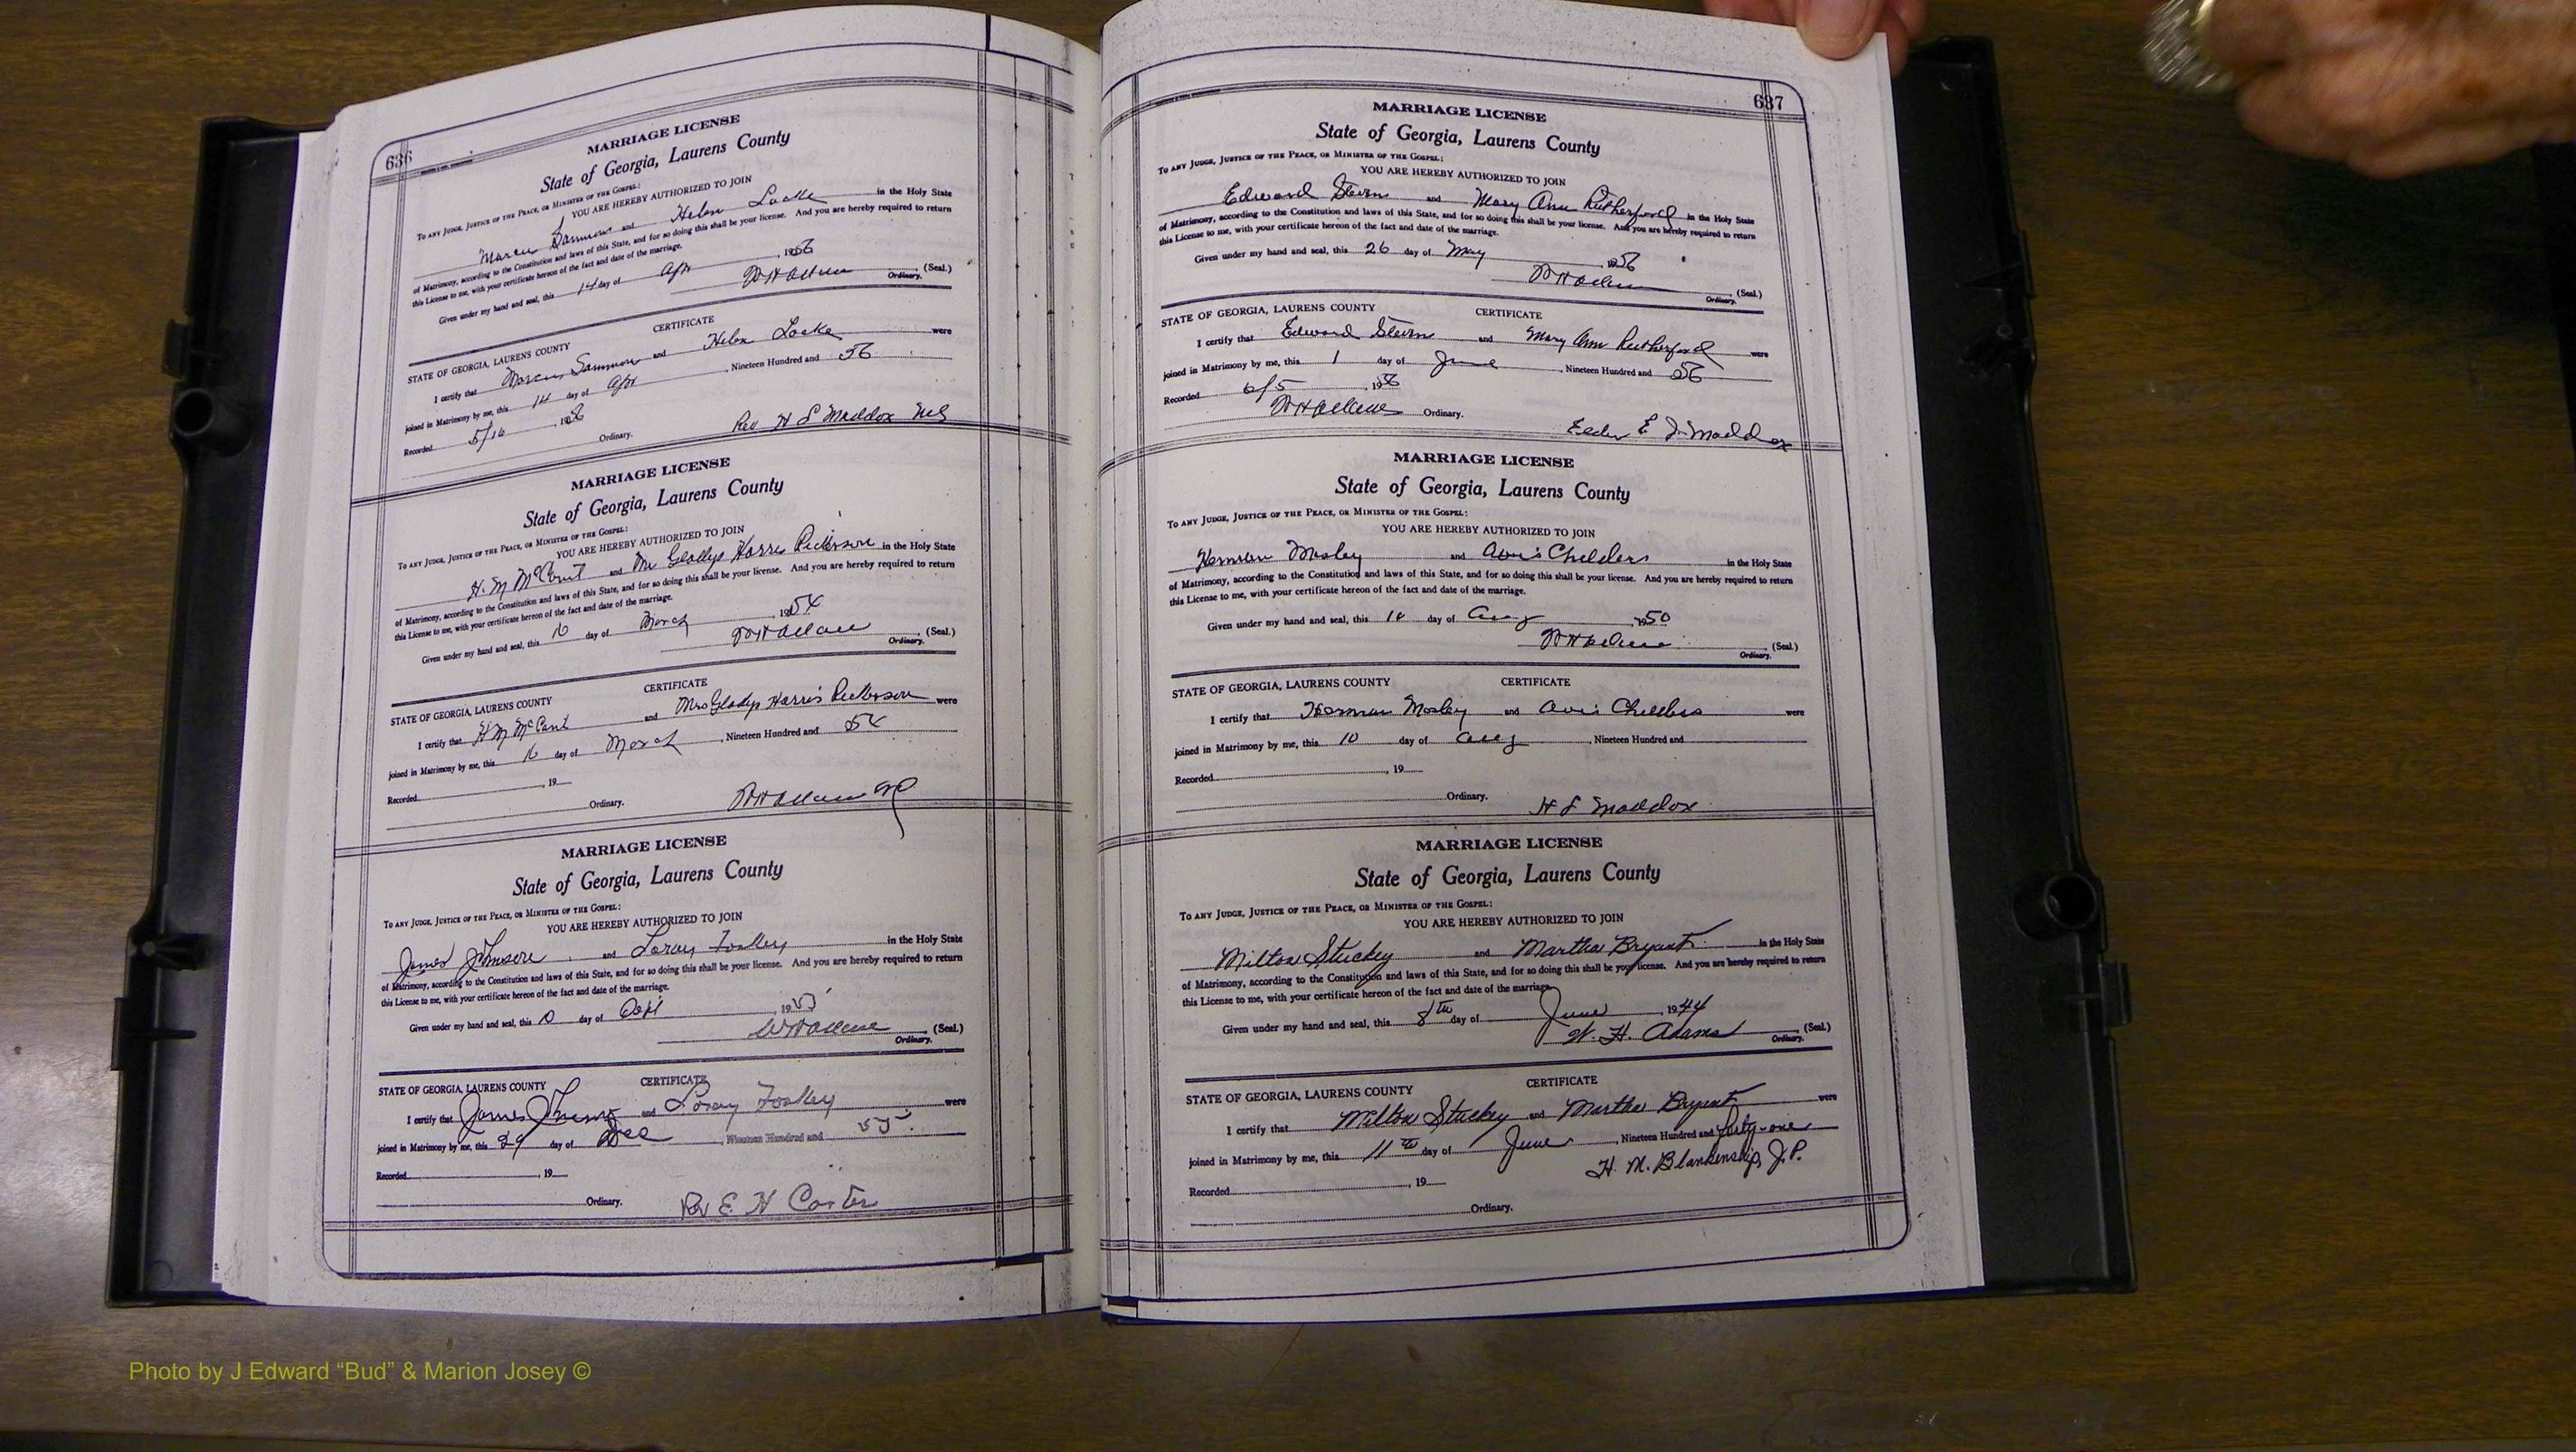 636
MARRIAGE LICENSE
State of Georgia, Laurens County
TO ANY JUDGE, JUSTICE OF THE PEACE, OR MINISTER OF THE GOSPEL:
YOU ARE HEREBY AUTHORIZED TO JOIN
Marcus Sammons and Helen Locke in the Holy State
of Matrimony, according to the Constitution and laws of this State, and for so doing this shall be your license. And you are hereby required to return
this License to me, with your certificate hereon of the fact and date of the marriage.
Given under my hand and seal, this 14 day of Apr, 1956
(Seal.)
Ordinary.
CERTIFICATE
STATE OF GEORGIA, LAURENS COUNTY
I certify that Marcus Sammons and Helen Locke were
joined in Matrimony by me, this 14 day of Apr, Nineteen Hundred and 56
Recorded 5/16, 1956
Ordinary.
Rev H S Maddox
MARRIAGE LICENSE
State of Georgia, Laurens County
TO ANY JUDGE, JUSTICE OF THE PEACE, OR MINISTER OF THE GOSPEL:
YOU ARE HEREBY AUTHORIZED TO JOIN
H. M. McCant and Mrs Gladys Harris in the Holy State
of Matrimony, according to the Constitution and laws of this State, and for so doing this shall be your license. And you are hereby required to return
this License to me, with your certificate hereon of the fact and date of the marriage.
Given under my hand and seal, this 16 day of March, 1954
(Seal.)
Ordinary.
CERTIFICATE
STATE OF GEORGIA, LAURENS COUNTY
I certify that H M McCant and Mrs Gladys Harris were
joined in Matrimony by me, this 16 day of March, Nineteen Hundred and 54
Recorded, 19
Ordinary.
MARRIAGE LICENSE
State of Georgia, Laurens County
TO ANY JUDGE, JUSTICE OF THE PEACE, OR MINISTER OF THE GOSPEL:
YOU ARE HEREBY AUTHORIZED TO JOIN
James Johnson and in the Holy State
of Matrimony, according to the Constitution and laws of this State, and for so doing this shall be your license. And you are hereby required to return
this License to me, with your certificate hereon of the fact and date of the marriage.
Given under my hand and seal, this day of, 19
(Seal.)
Ordinary.
CERTIFICATE
STATE OF GEORGIA, LAURENS COUNTY
I certify that James and were
joined in Matrimony by me, this 29 day of Dec, Nineteen Hundred and
Recorded, 19
Ordinary.
Rev E. H Carter
637
MARRIAGE LICENSE
State of Georgia, Laurens County
TO ANY JUDGE, JUSTICE OF THE PEACE, OR MINISTER OF THE GOSPEL:
YOU ARE HEREBY AUTHORIZED TO JOIN
Edward and Mary Ann Rutherford in the Holy State
of Matrimony, according to the Constitution and laws of this State, and for so doing this shall be your license. And you are hereby required to return
this License to me, with your certificate hereon of the fact and date of the marriage.
Given under my hand and seal, this 26 day of May, 1956
(Seal.)
Ordinary.
STATE OF GEORGIA, LAURENS COUNTY CERTIFICATE
I certify that Edward and Mary Ann Rutherford were
joined in Matrimony by me, this 1 day of June, Nineteen Hundred and 56
Recorded 6/5, 1956
Ordinary.
Elder E J Maddox
MARRIAGE LICENSE
State of Georgia, Laurens County
TO ANY JUDGE, JUSTICE OF THE PEACE, OR MINISTER OF THE GOSPEL:
YOU ARE HEREBY AUTHORIZED TO JOIN
Herman Mosley and Avis Childers in the Holy State
of Matrimony, according to the Constitution and laws of this State, and for so doing this shall be your license. And you are hereby required to return
this License to me, with your certificate hereon of the fact and date of the marriage.
Given under my hand and seal, this 10 day of Aug, 1950
(Seal.)
Ordinary.
STATE OF GEORGIA, LAURENS COUNTY CERTIFICATE
I certify that Herman Mosley and Avis Childers were
joined in Matrimony by me, this 10 day of Aug, Nineteen Hundred and
Recorded, 19
Ordinary.
H S Maddox
MARRIAGE LICENSE
State of Georgia, Laurens County
TO ANY JUDGE, JUSTICE OF THE PEACE, OR MINISTER OF THE GOSPEL:
YOU ARE HEREBY AUTHORIZED TO JOIN
Milton Stuckey and Martha Bryant in the Holy State
of Matrimony, according to the Constitution and laws of this State, and for so doing this shall be your license. And you are hereby required to return
this License to me, with your certificate hereon of the fact and date of the marriage.
Given under my hand and seal, this 8th day of June, 1944
W. H. Adams (Seal.)
Ordinary.
CERTIFICATE
STATE OF GEORGIA, LAURENS COUNTY
I certify that Milton Stuckey and Martha Bryant were
joined in Matrimony by me, this 11th day of June, Nineteen Hundred and forty-one
H. M. Blankenship, J.P.
Recorded, 19
Ordinary.
Photo by J Edward “Bud” & Marion Josey ©